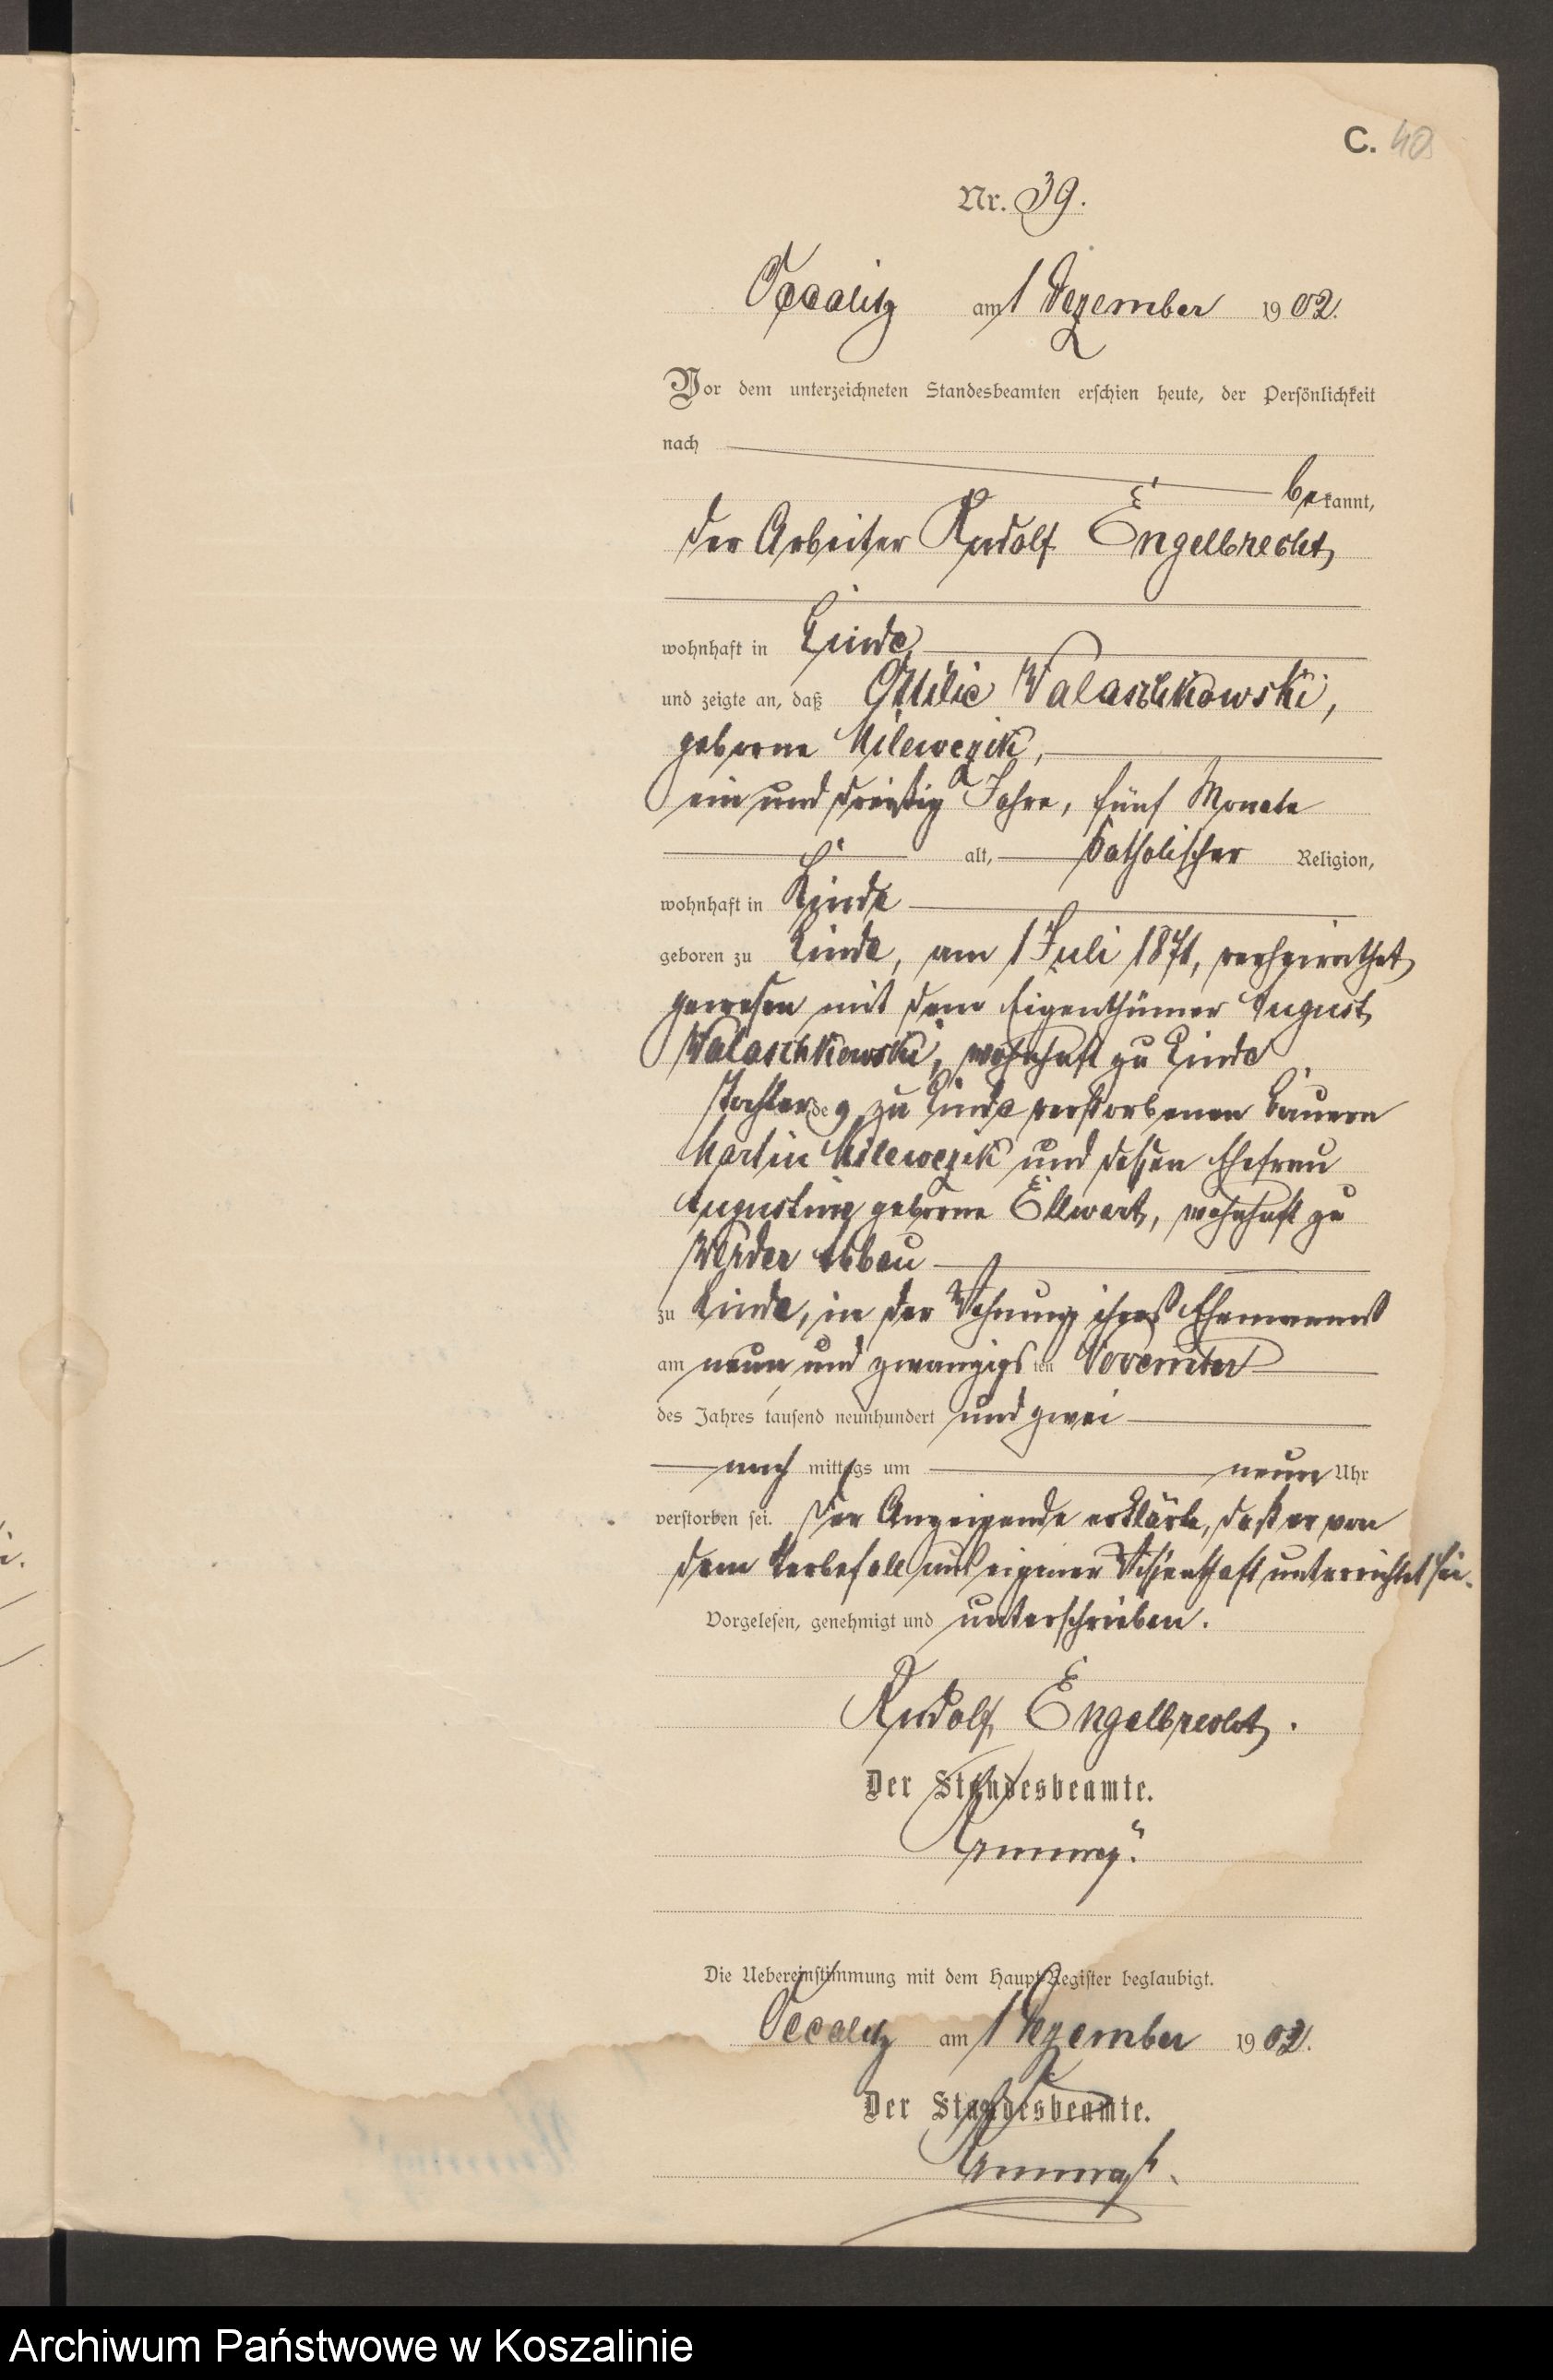 C. 40
Nr. 39.
Occalitz am 1 Dezember 1902.
Vor dem unterzeichneten Standesbeamten erschien heute, der Persönlichkeit
nach
bekannt,
der Arbeiter Rudolf Engelbrecht,
wohnhaft in Linde
und zeigte an, daß Ottilie Walaschkowski,
geborne Milewczik,
ein und dreißig Jahre, fünf Monate
alt, katholischer Religion,
wohnhaft in Linde
geboren zu Linde, am 1 Juli 1871, verheirathet
gewesen mit dem Eigenthümer August
Walaschkowski, wohnhaft zu Linde
Tochter des zu Linde verstorbenen Bauern
Martin Milewczik und dessen Ehefrau
Augustine geborne Ellwart, wohnhaft zu
Werder Abbau
zu Linde, in der Wohnung ihres Ehemannes
am neun und zwanzigsten November
des Jahres tausend neunhundert und zwei
nach mittags um neun Uhr
verstorben sei. Der Anzeigende erklärte, daß er von
dem Sterbefall aus eigener Wissenschaft unterrichtet sei.
Vorgelesen, genehmigt und unterschrieben.
Rudolf Engelbrecht.
Der Standesbeamte.
Die Uebereinstimmung mit dem Haupt-Register beglaubigt.
Occalitz am 1 Dezember 1902.
Der Standesbeamte.
Archiwum Państwowe w Koszalinie